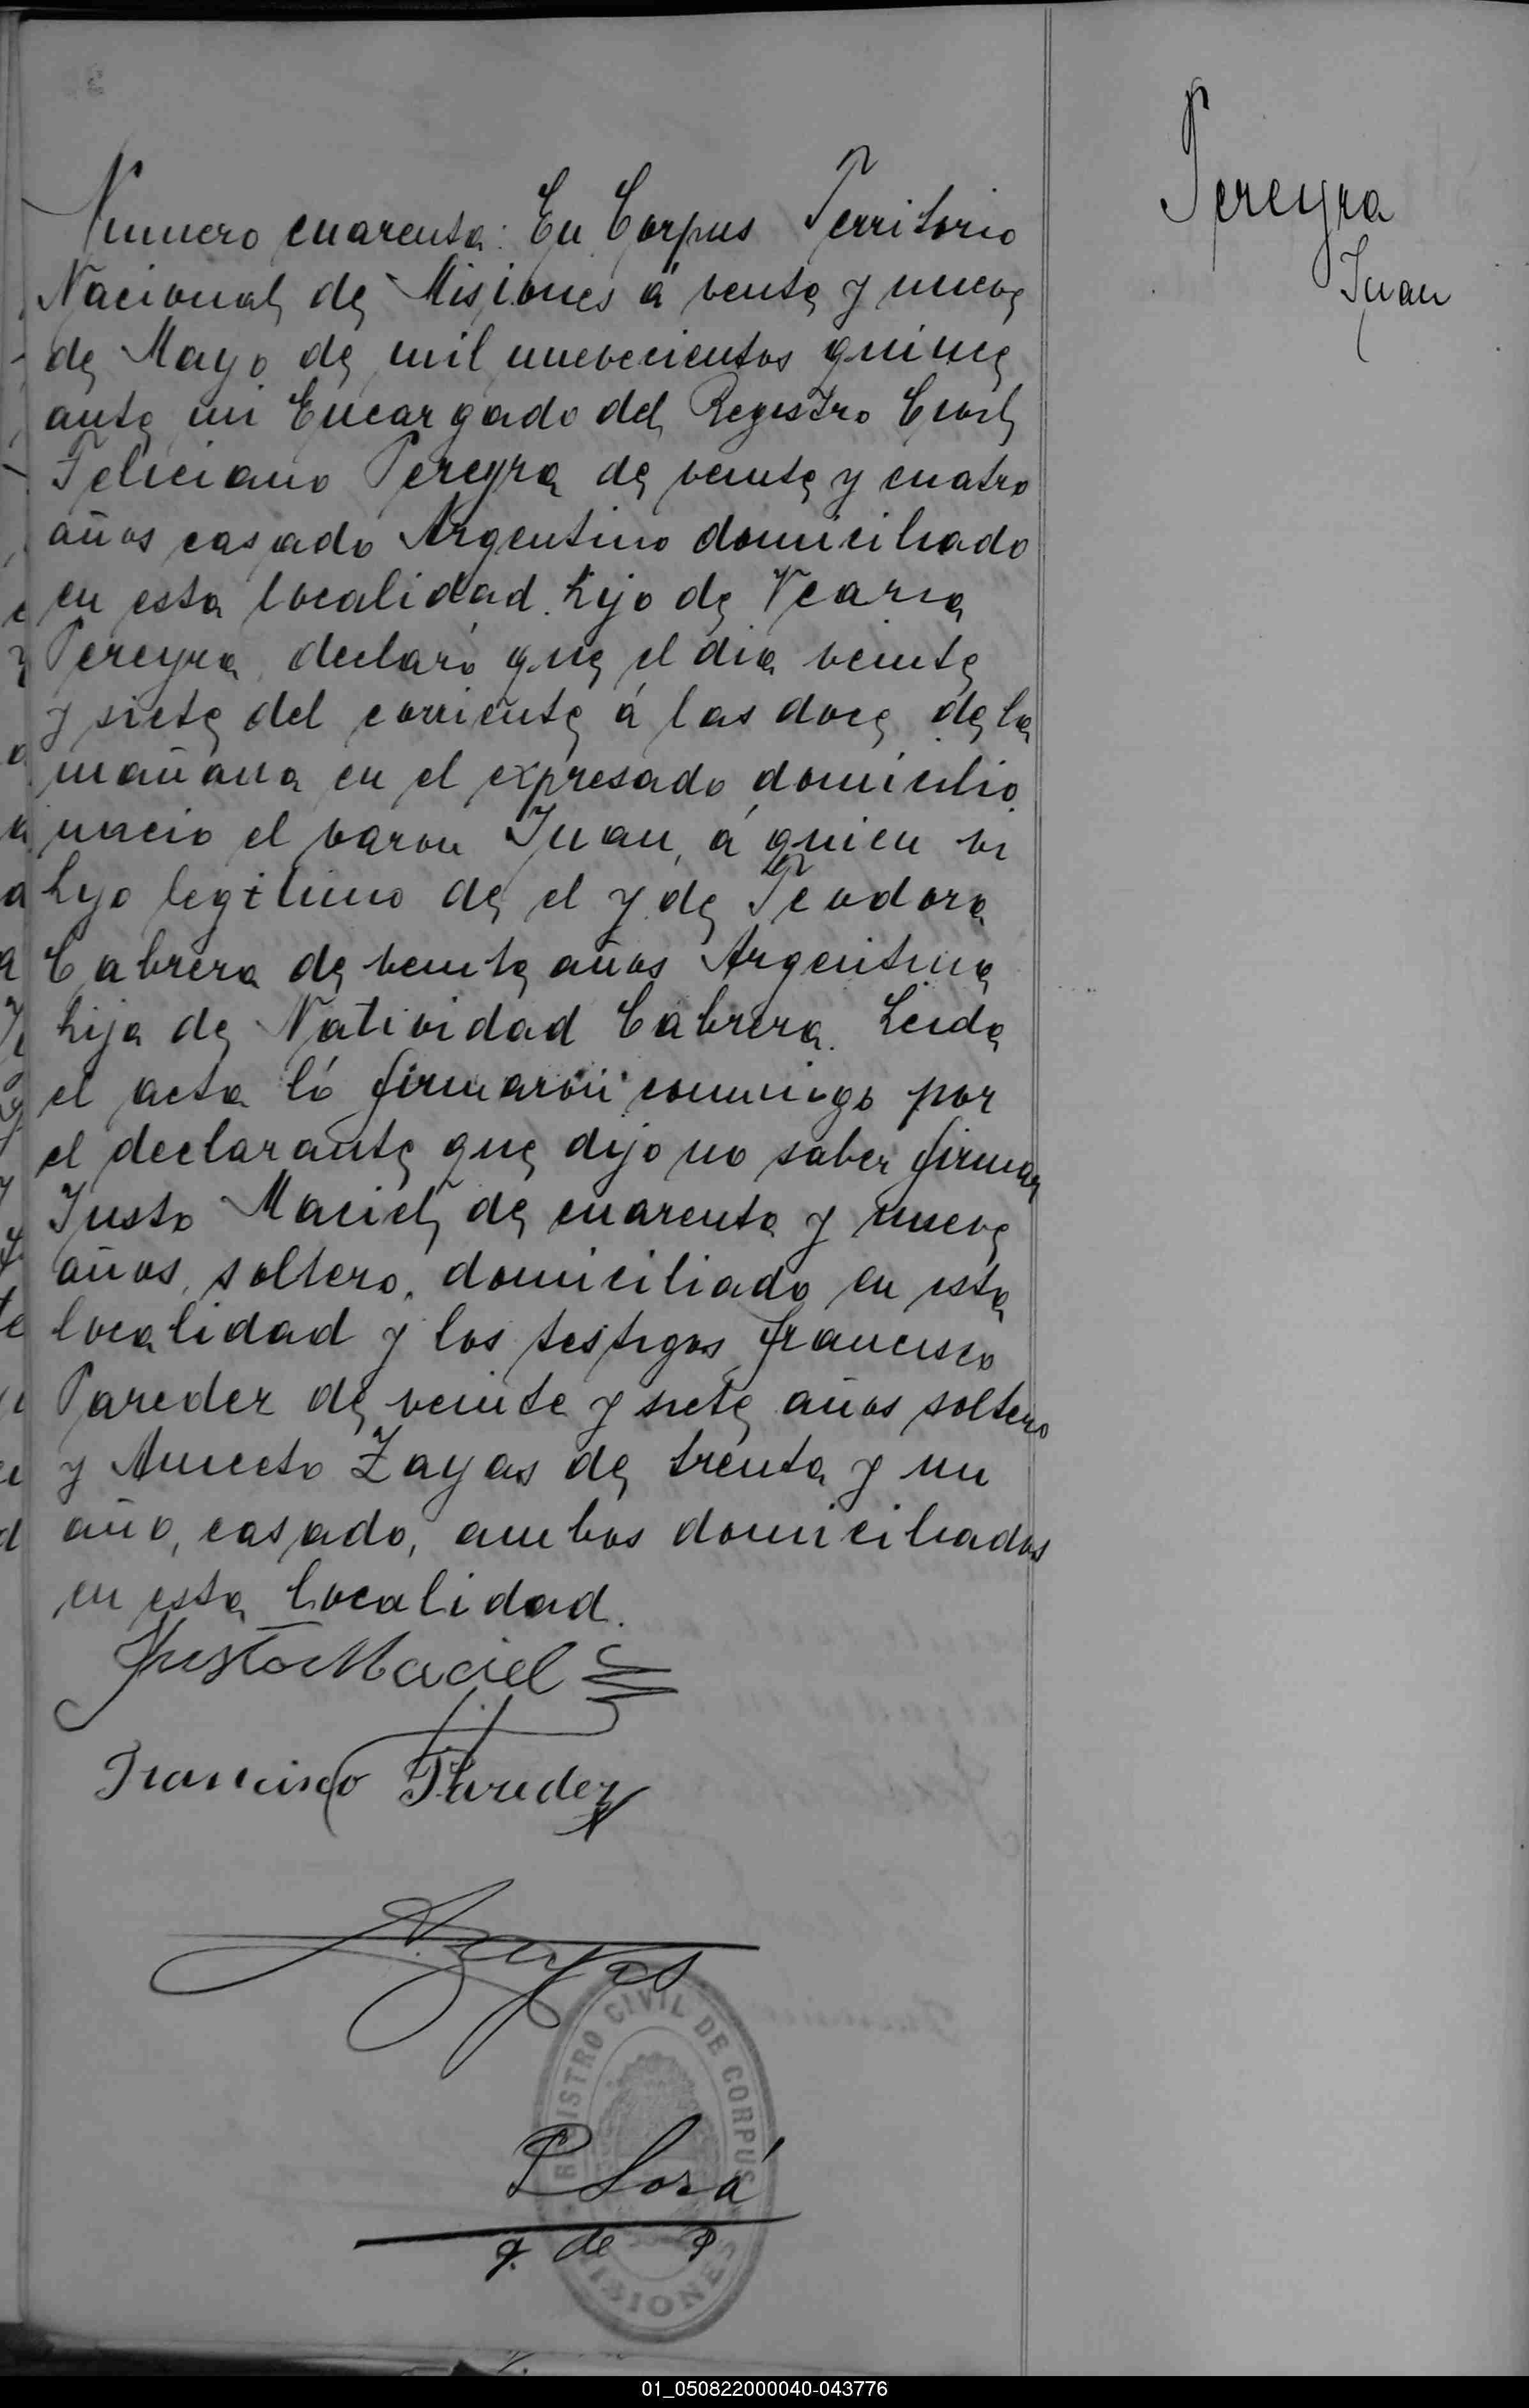 Pereyra
Juan
Numero cuarenta: En Corpus Territorio
Nacional de Misiones á vente y nueve
de Mayo de mil nuevecientos quince
ante mi Encargado del Registro Civil
Feliciano Pereyra de veinte y cuatro
años casado Argentino domiciliado
en esta localidad. hijo de
Pereyra, declaró que el dia veinte
y siete del corriente á las doce de la
mañana en el expresado domicilio
nacio el varon Juan, á quien vi
hijo legitimo de el y de Teodora
Cabrera de veinte años Argentina
hija de Natividad Cabrera. Leida
el acta lo firmaron conmigo por
el declarante que dijo no saber firmar
Justo Maciel de cuarenta y nueve
años, soltero, domiciliado en esta
localidad y los testigos francisco
Paredez de veinte y siete años soltero
y Aniceto Zayas de trenta y un
año, casado, ambos domiciliados
en esta localidad.
Justo Maciel
Francisco Paredez
AZayas
REGISTRO CIVIL DE CORPUS
MISIONES
P Sosá
J. de P
01_050822000040-043776